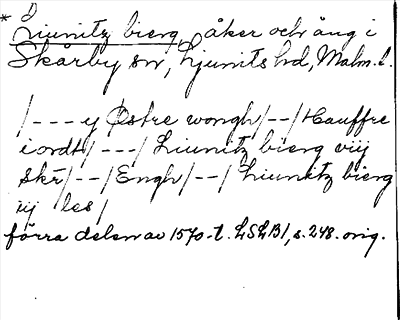 * Liunitz bierg, åker och äng i
Skårby sn, Ljunits hd, Malm. l.
/---y Østre wongh/--/Hauffre
iordt/---/Liunitz bierg viij
skr/--/Engh/--/Liunitz bierg
iij les/
förra delen av 1570-t. LSLB1, s. 248. orig.